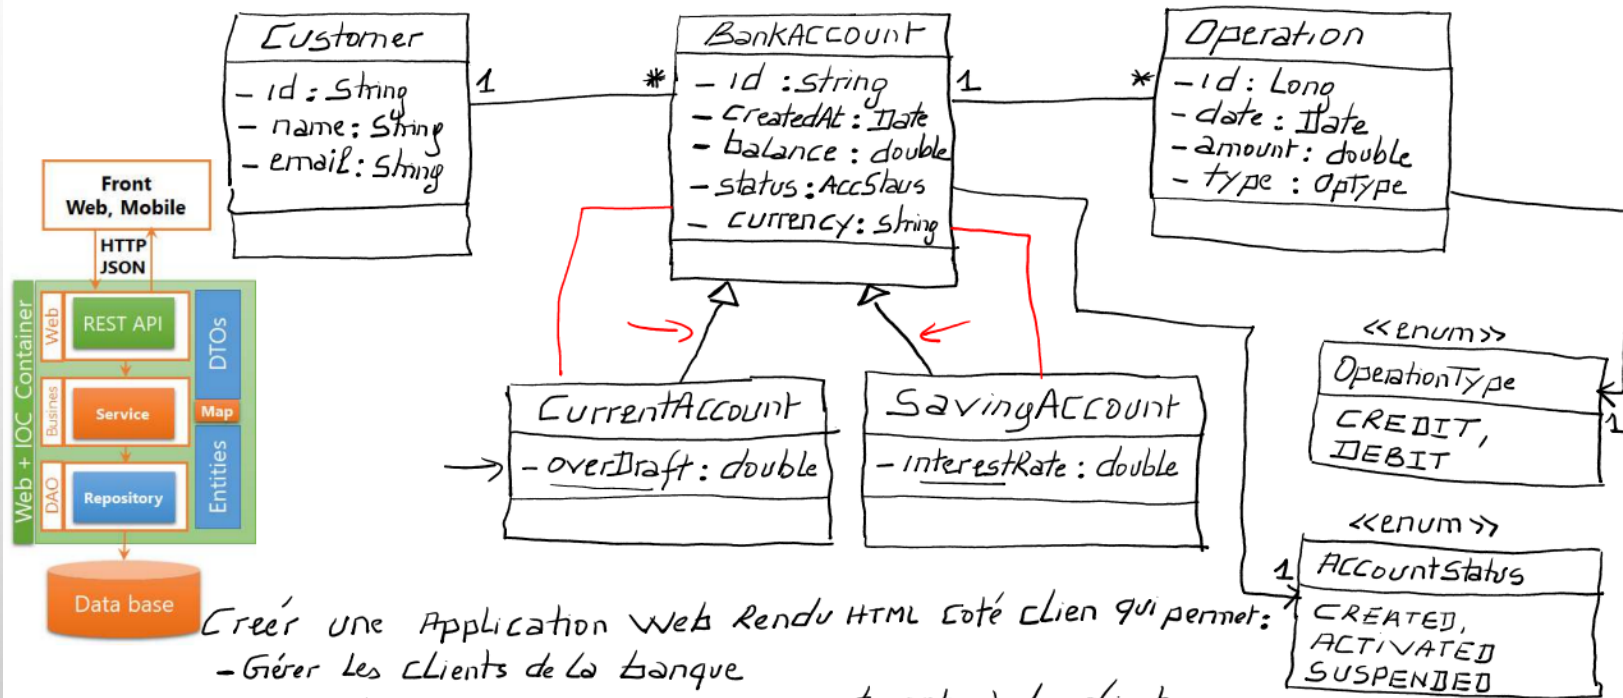 Customer
- id : String
- name : String
- email : String
1
*
BankAccount
- id : String
- createdAt : Date
- balance : double
- status : AccStaus
- currency : String
1
*
Operation
- id : Long
- date : Date
- amount : double
- type : OpType
Front
Web, Mobile
HTTP
JSON
Web + IOC Container
Web
REST API
DTOs
Busines
Service
Map
DAO
Repository
Entities
Data base
CurrentAccount
- overDraft : double
SavingAccount
- interestRate : double
<<enum>>
OperationType
1
CREDIT,
DEBIT
<<enum>>
1
AccountStatus
CREATED,
ACTIVATED
SUSPENDED
Creér une Application Web Rendu HTML Coté Clien qui permet :
- Gérer Les Clients de La banque